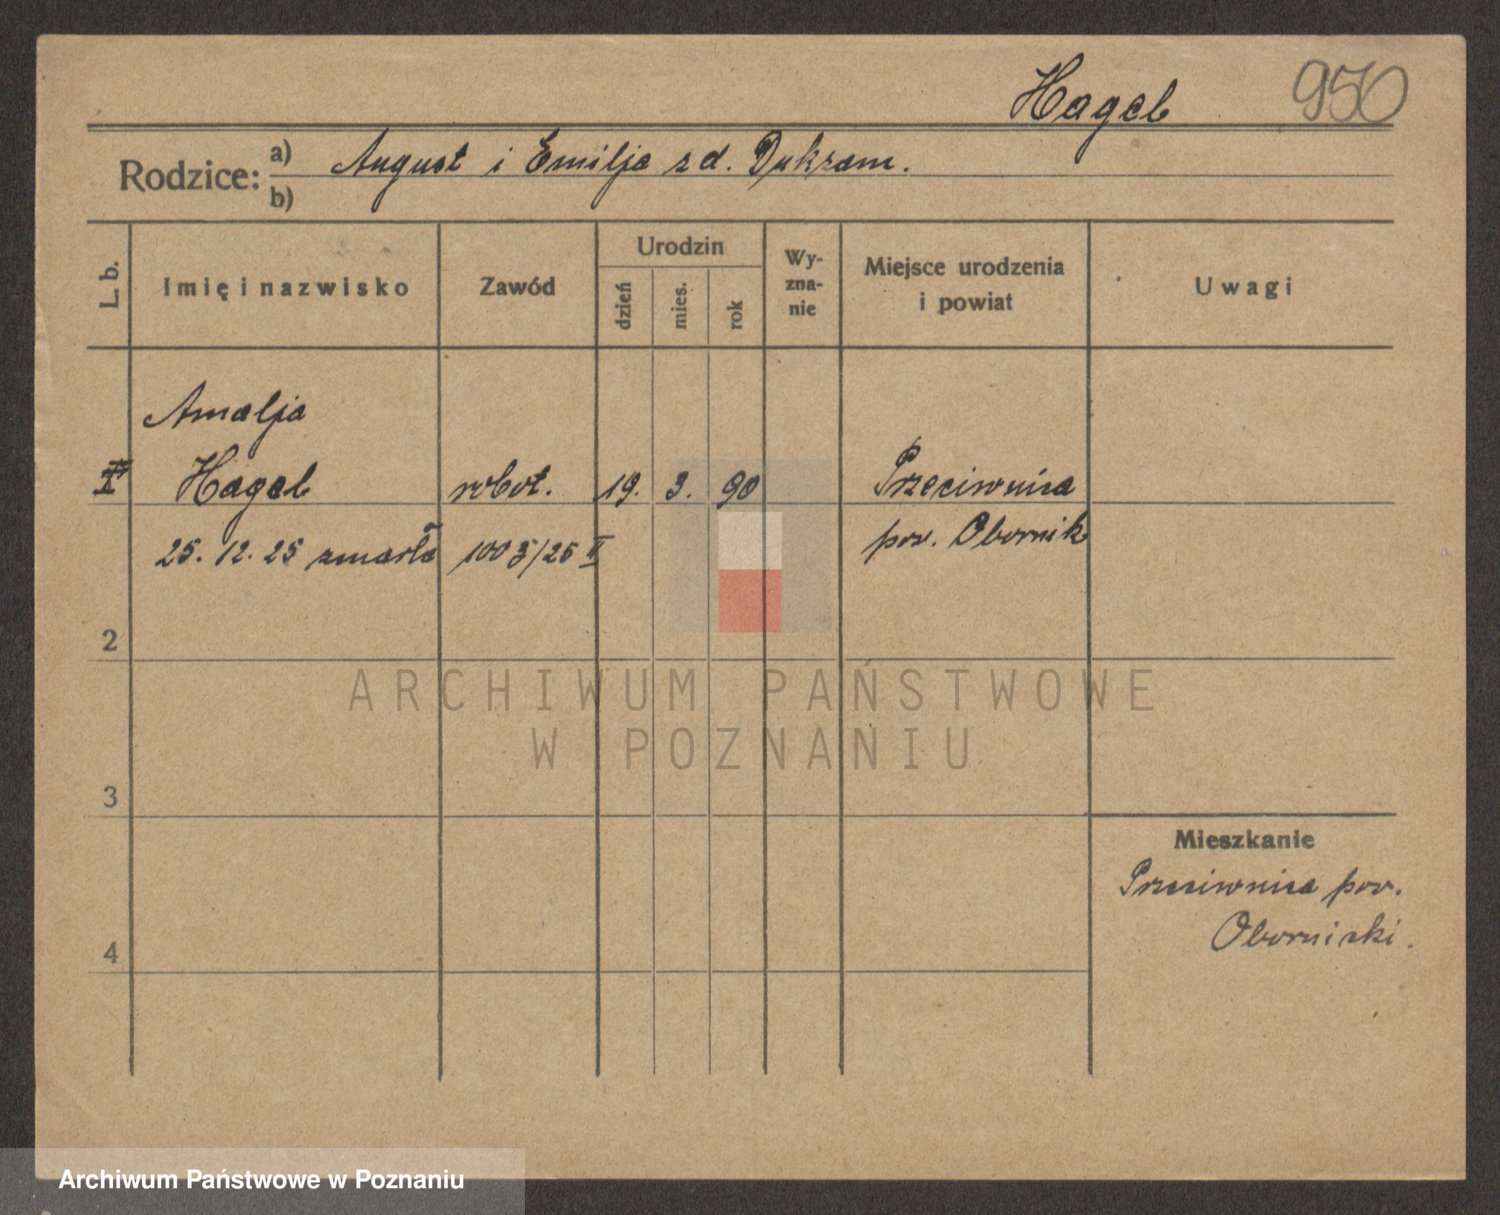 Hagel 950
Rodzice: a) August i Emilja zd. Dukzam.
b)
L. b.
Imię i nazwisko
Zawód
Urodzin
dzień
mies.
rok
Wy-
zna-
nie
Miejsce urodzenia
i powiat
Uwagi
Amalja
Hagel robot. 19. 3. 90 Przeciwnica
25. 12. 25 zmarła 1003/25 II pow. Obornik
2
3
4
Mieszkanie
Przeciwnica pow.
Obornicki.
ARCHIWUM PAŃSTWOWE
W POZNANIU
Archiwum Państwowe w Poznaniu